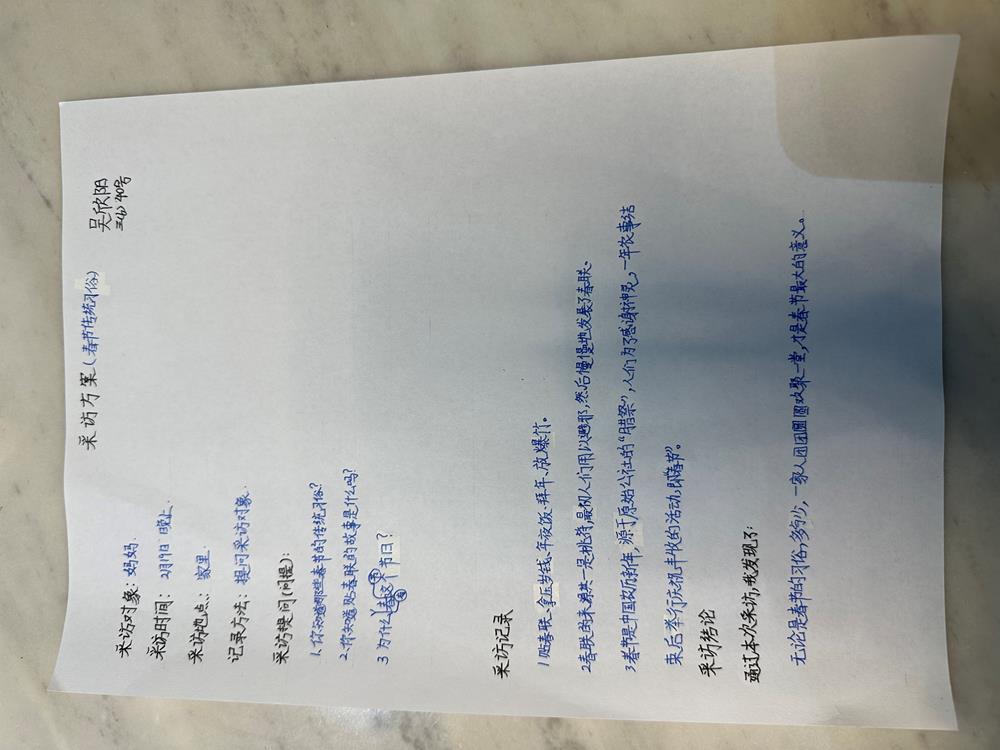 采访方案(春节传统习俗)
吴欣阳
三(4) 40号
采访对象：妈妈
采访时间：2月19日 晚上
采访地点：家里
记录方法：提问采访对象
采访提问(问提)：
1、你知道哪些春节的传统习俗？
2、你知道贴春联的故事是什么吗？
3 为什么有春节这个节日？
采访记录
1贴春联、拿压岁钱、年夜饭、拜年、放爆竹。
2春联的来源其一是桃符,最初人们用以避邪,然后慢慢地发展了春联、
3春节是中国农历新年,源于原始公社的“腊祭”,人们为了感谢神灵,一年农事结
束后举行庆祝丰收的活动,即“春节”。
采访结论
通过本次采访,我发现了:
无论是春节的习俗,多与少,一家人团团圆圆欢聚一堂,才是春节最大的意义。